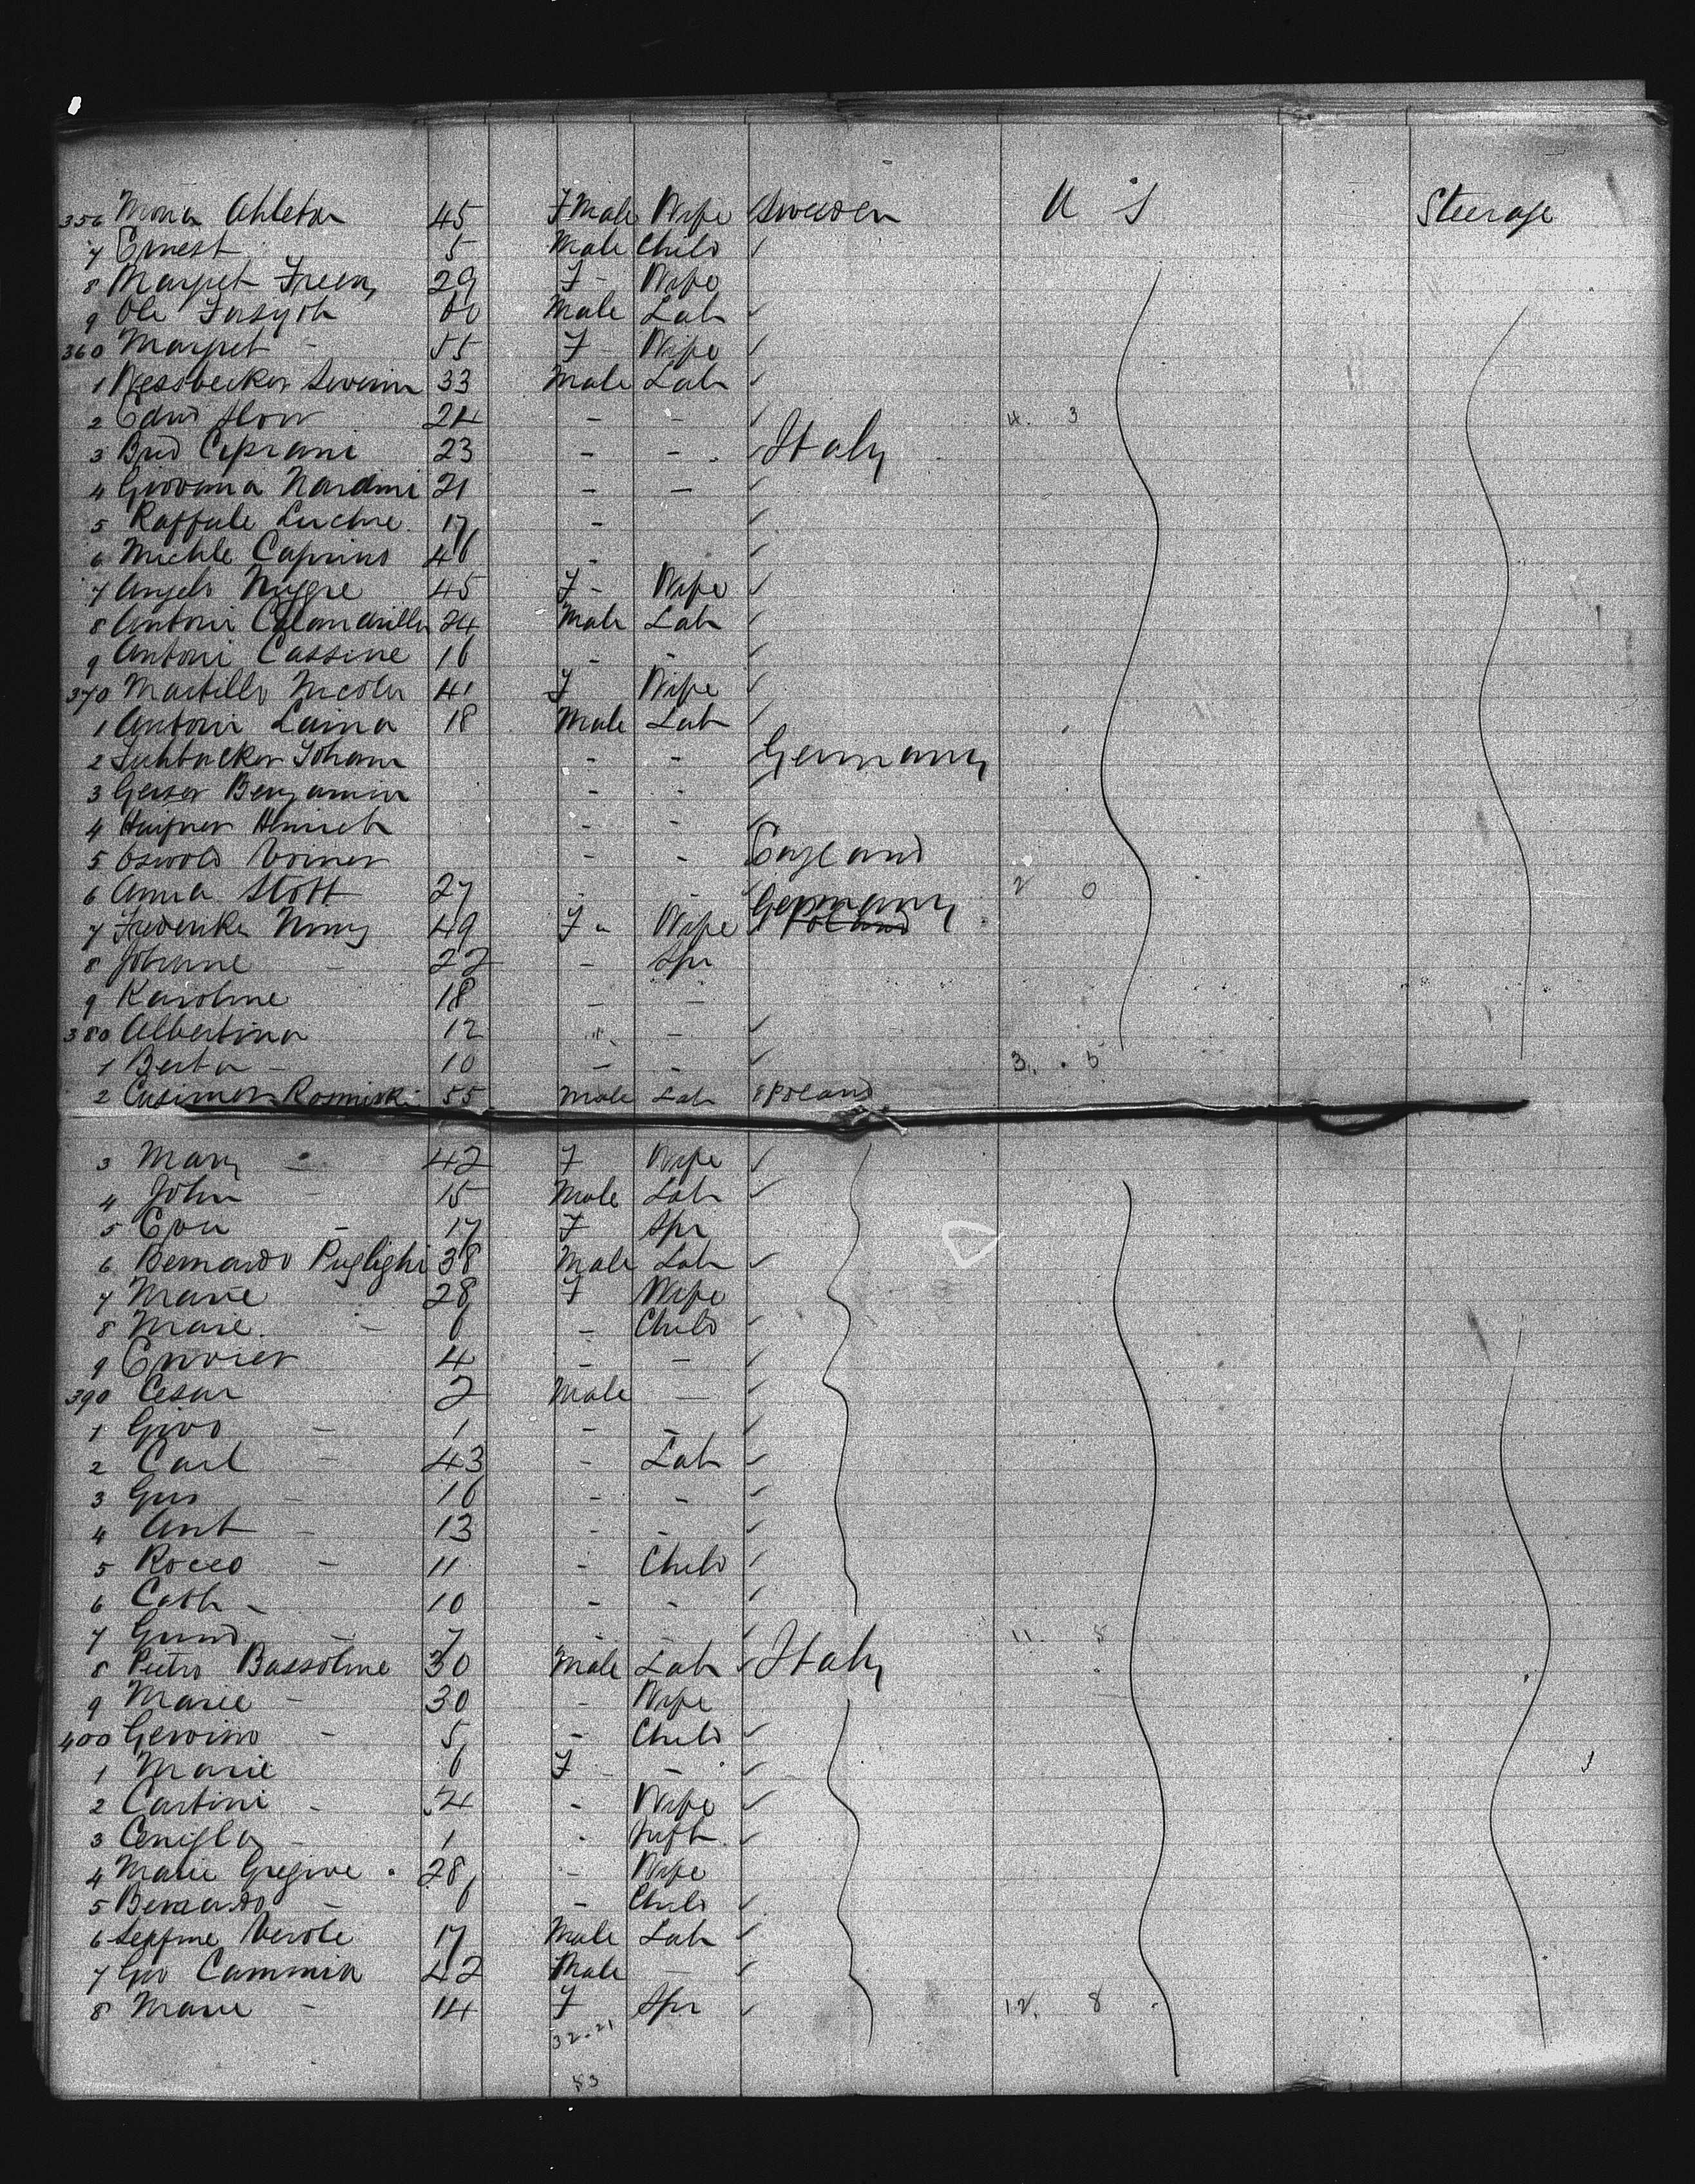 356 Maria Ahleton 45 Fmale Wife Sweden U S Steerage
7 Ernest 5 Male Child
8 Margret Freen 29 F - Wife
9 Ole 60 Male Lab
360 Margret - 55 F - Wife
1 Wessbecker Severin 33 Male Lab
2 Edwd 24 - - 4. 3
3 Cipriani 23 - - Italy
4 Giovanna Nardini 21 - -
5 Raffale Luchie 17 -
6 Michle Caprino 46 -
7 Angelo Nuggre 45 F - Wife
8 Antoni Calandrillo 24 Male Lab
9 Antoni Cassine 16 - -
370 Martillo Nicola 41 F Wife
1 Antoni Laina 18 Male Lab
2 Johann - - Germany
3 Geiser Benjamin - -
4 Hinrich - -
5 Oswald - - England
6 Anna Stott 27 - - 2 0
7 Frederike 49 F " Wife Germany Poland
8 Johanne - 22 - Spr
9 Karoline 18 - -
380 Albertina 12 " -
1 Berta - 10 - - 3. 5
2 Casimer Rominski 55 Male Lab Poland
3 Mary - 42 F Wife
4 John - 15 Male Lab
5 Eva - 17 F Spr
6 Bernardo Puglighi 38 Male Lab
7 Marie 28 F Wife
8 Marie - 6 - Child
9 4 - -
390 Cesar 2 Male -
1 Givo - 1 - -
2 Carl - 43 - Lab
3 Gus - 16 - -
4 Ant - 13 - -
5 Rocco - 11 - Child
6 Cath - 10 - -
7 - 7 - - 11. 5
8 Pietro Bassoline 30 Male Lab Italy
9 Marie - 30 - Wife
400 Gervino - 5 - Child
1 Marie 6 F - -
2 Cartini - 24 - Wife
3 - 1 - Inft
4 Marie Gregive 28 - Wife
5 Bernardo - 6 - Child
6 Verole 17 Male Lab
7 Gio Cammina 42 Male -
8 Marie - 14 F Spr 12. 8
32-21
53